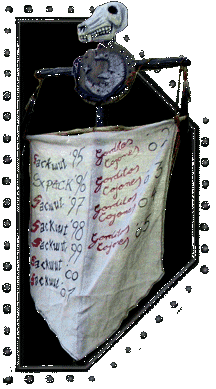 Packwut '95
Expack '96
Pacwut '97
Packwut '98
Packwut 99
Packwut 00
Packwut
07
Gorditos
Cojones 02
Gorditos
Cojones 03
Gorditos
Cojones
Gorditos
Cojones